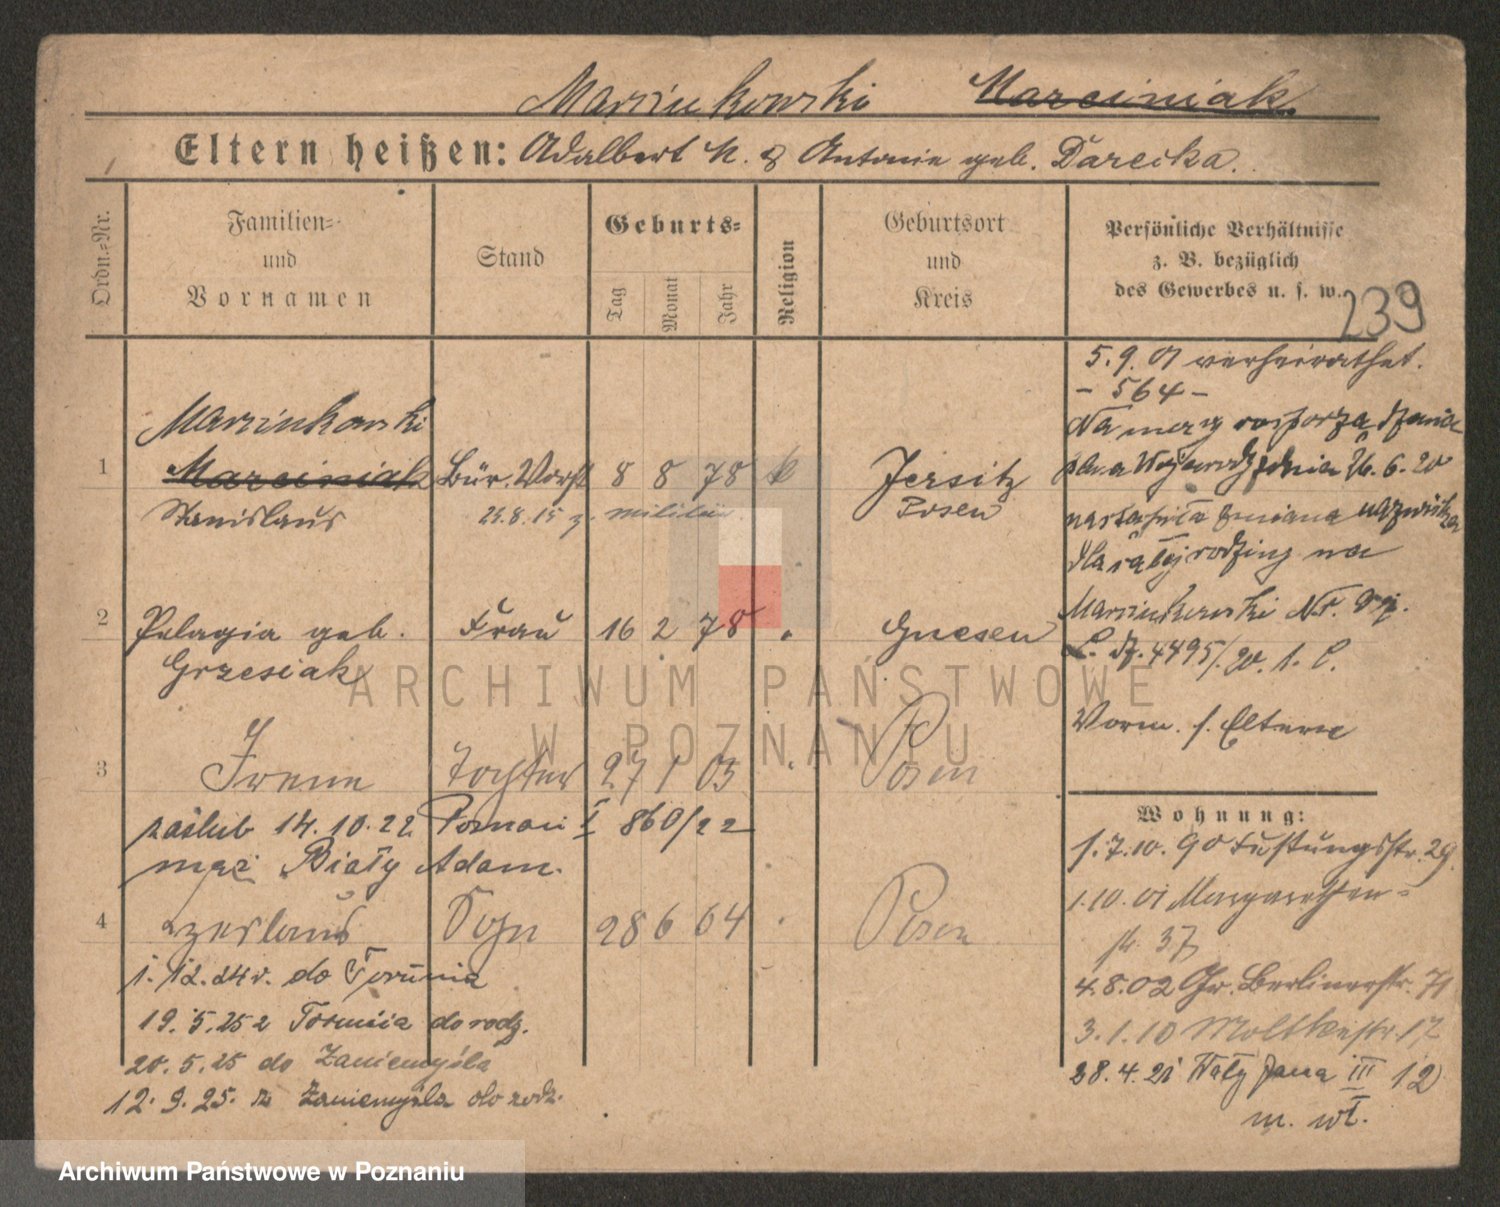 Marcinkowski Marciniak
Eltern heißen: Adalbert M. & Antonie geb. Darecka.
Ordn.-Nr.
Familien-
und
Vornamen
Stand
Geburts-
Tag
Monat
Jahr
Religion
Geburtsort
und
Kreis
Persönliche Verhältnisse
z. B. bezüglich
des Gewerbes u. s. w.
239
5.9.01 verheirathet.
- 564 -
Na mocy rozporządzenia
pana Wojewody z dnia 26.6.20
nastąpiła zmiana nazwiska
dla całej rodziny na
Marcinkowski Nr.
L. dz. 4495/20. 1. C.
Vorm. s. Eltern
1
Marcinkowski
Marciniak
Stanislaus
Bür. Vorst
8 8 78 k
25.8.15 z. Militär
Jersitz
Posen
2
Pelagia geb.
Grzesiak
Frau
16 2 78
Gnesen
3
Irene
Tochter
27 1 03
Posen
zaślub 14.10.22 Poznań I 860/22
mąż Biały Adam.
4
Czeslaus
Sohn
28 6 04
Posen
1.12.24 r. do Torunia
19.5.25 z Torunia do rodz.
20.5.25 do Zaniemyśla
12.9.25. z Zaniemyśla do rodz.
Wohnung:
1.7.10.90 Festungsstr. 29.
1.10.01 Margarethen-
str. 37
4.8.02 Gr. Berlinerstr. 71
3.1.10 Moltkestr. 12
28.4.21 Wały Jana III 12
m. wł.
ARCHIWUM PAŃSTWOWE
W POZNANIU
Archiwum Państwowe w Poznaniu